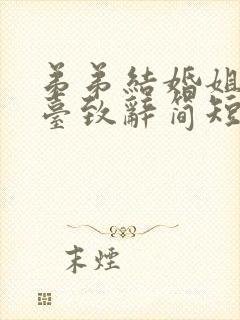 弟弟結婚姐
臺致辭簡短
末煙